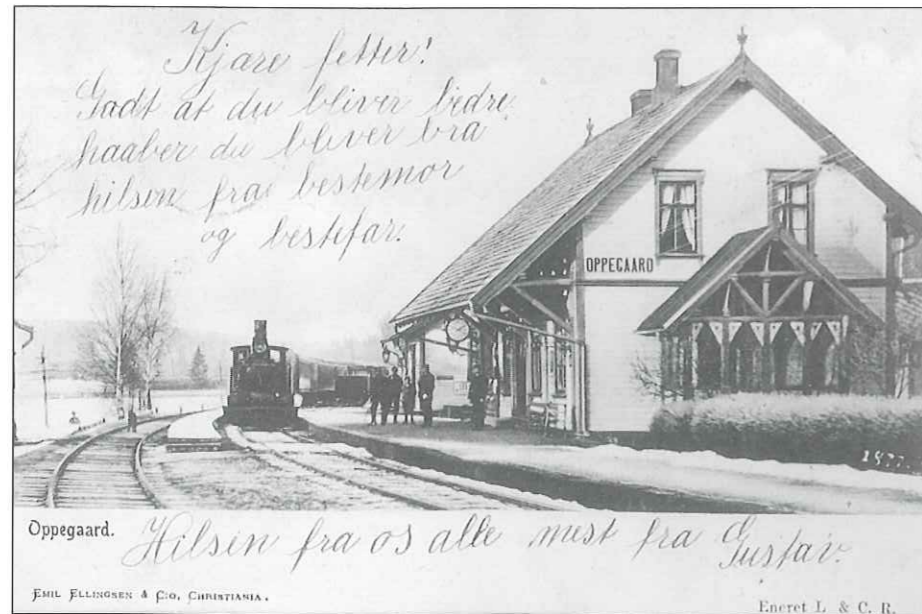 Kjare fetter!
Godt at du bliver bedre
haaber du bliver bra
hilsen fra bestemor
og bestefar.
OPPEGAARD
1877.
Oppegaard.
Hilsen fra os alle mest fra Gustav.
EMIL ELLINGSEN & C:O, CHRISTIANIA.
Eneret L. & C. R.